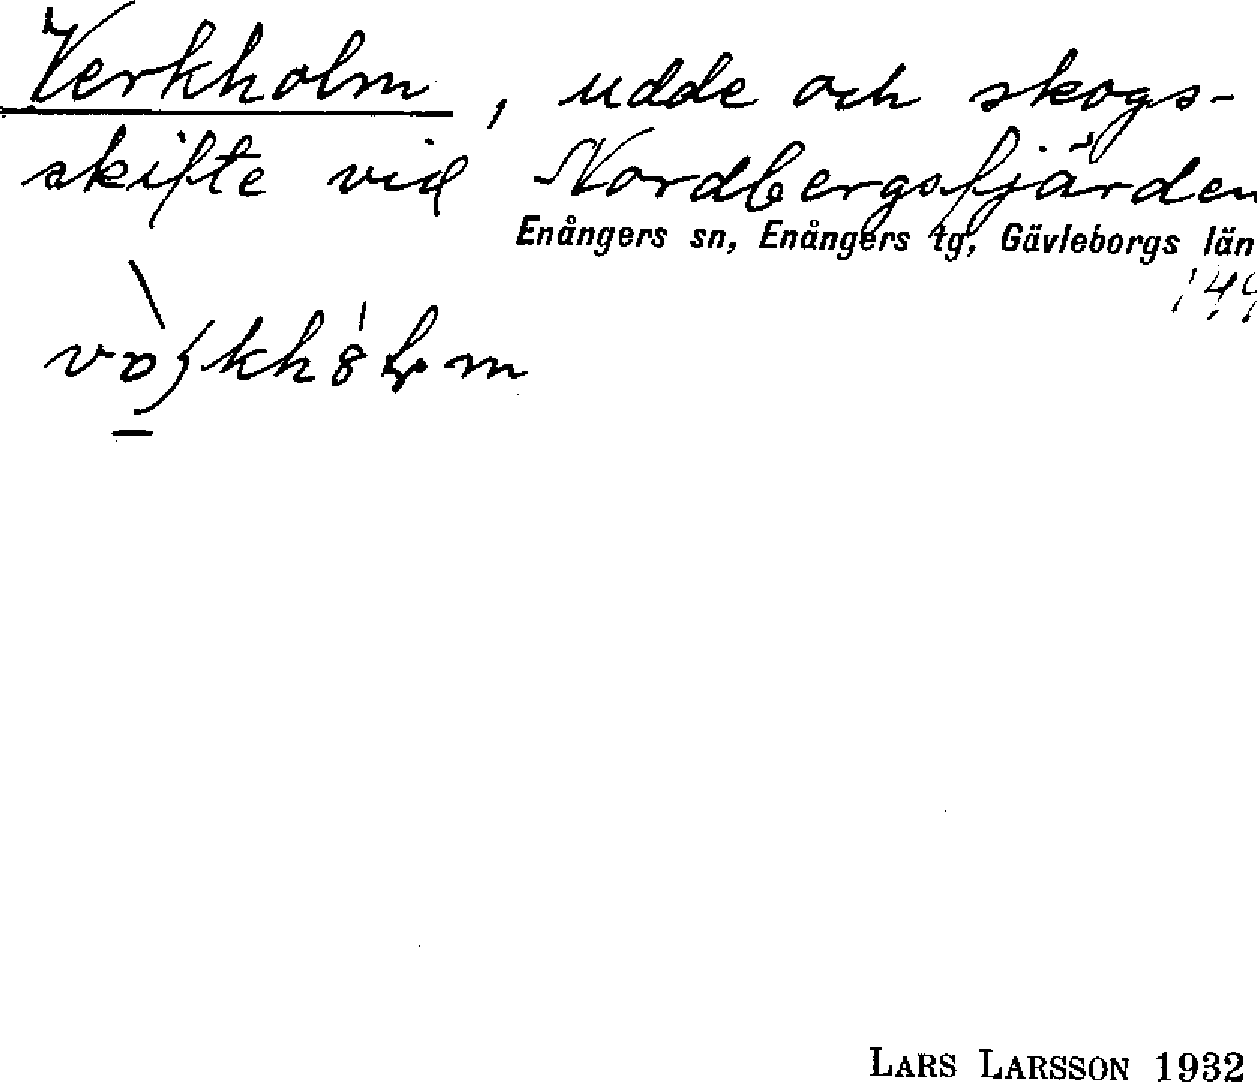 Verkholm, udde och skogs-
skifte vid Nordbergsfjärden
Enångers sn, Enångers tg, Gävleborgs län
LARS LARSSON 1932